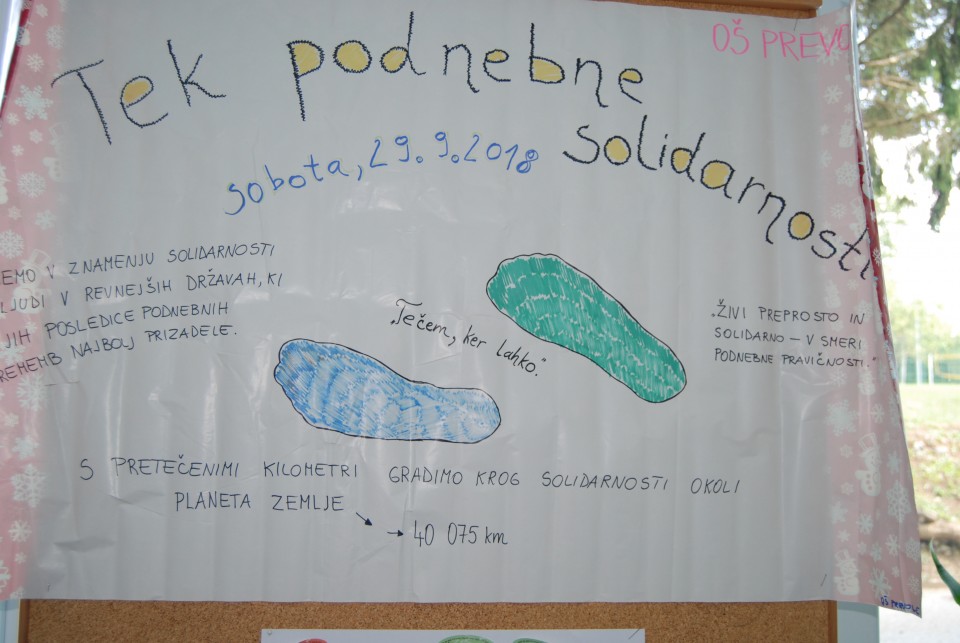 OŠ PREVO
Tek podnebne
solidarnosti
sobota, 29.9.2018
EMO V ZNAMENJU SOLIDARNOSTI
LJUDI V REVNEJŠIH DRŽAVAH, KI
JIH POSLEDICE PODNEBNIH
REMEMB NAJBOLJ PRIZADELE.
"Tečem, ker lahko."
"ŽIVI PREPROSTO IN
SOLIDARNO – V SMERI
PODNEBNE PRAVIČNOSTI."
S PRETEČENIMI KILOMETRI GRADIMO KROG SOLIDARNOSTI OKOLI
PLANETA ZEMLJE
40 075 km
OŠ PREVOLE